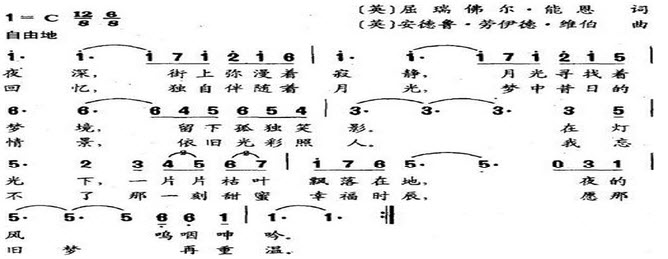 1=C 12/8 6/8 (英)屈瑞佛尔·能恩 词
自由地 (英)安德鲁·劳伊德·维伯 曲
i· i· i 7 i 2 i 6 | i· i· i 7 i 2 i 6
夜深, 街上弥漫着 寂静, 月光寻找着
回忆, 独自伴随着 月光, 梦中昔日的
6· 6· 6 4 5 6 5 4 | 3· 3· 3· 3 5
梦境, 留下孤独笑影。 在灯
情景, 依旧光彩照人。 我忘
5· 2 3 4 5 6 7 | i 7 6 5· 5· 0 3 1
光下, 一片片枯叶 飘落在地, 夜的
不了那一刻甜蜜 幸福时辰, 愿那
5· 5· 5 6 6 1 | 1· 1· :‖
风 呜咽呻吟。
旧梦 再重温。